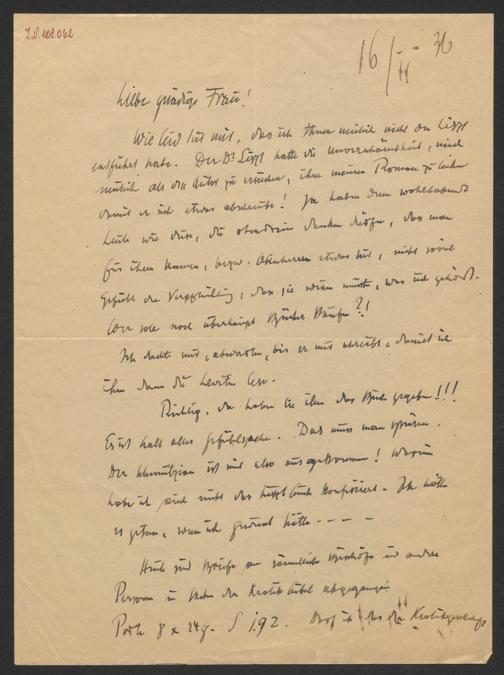 I.N. 208.062
16/II 36
Liebe gnädige Frau!
Wie leid tut mir, dass ich Ihnen neulich nicht den Liszt
entführt habe. Der Dr. hatte die Unverschämtheit, mich
neulich als den Autor zu, ihm meinen Roman zu leihen
damit er sich etwas! Ja haben denn wohlhabende
Leute wie dies, die obendrein danken dürfen, dass man
für ihren Namen, bezw. etwas tut, nicht soviel
Gefühl der Verpflichtung, dass sie wissen, was sich gehört.
Wer soll noch überhaupt Bücher kaufen?!
Ich dachte mir, abwarten, bis er mir schreibt, damit ich
ihm dann die Leviten lese.
Richtig, da haben Sie ihm das Buch gegeben!!!
Es ist halt alles Gefühlssache. Das muss man spüren.
Der ist mir also ausgekommen! Warum
habe ich auch nicht das Buch konfisziert. Ich hätte
es getan, wenn ich gewusst hätte ----
Heute sind Briefe an sämtliche Bischöfe und andere
Personen in Sachen der abgegangen.
Porto 8 x 24g. S 1.92. Darf ich das der